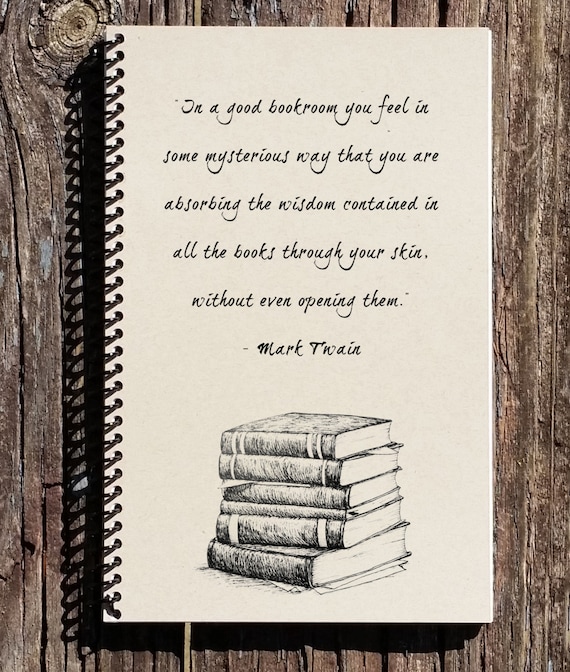 "In a good bookroom you feel in
some mysterious way that you are
absorbing the wisdom contained in
all the books through your skin,
without even opening them."
- Mark Twain